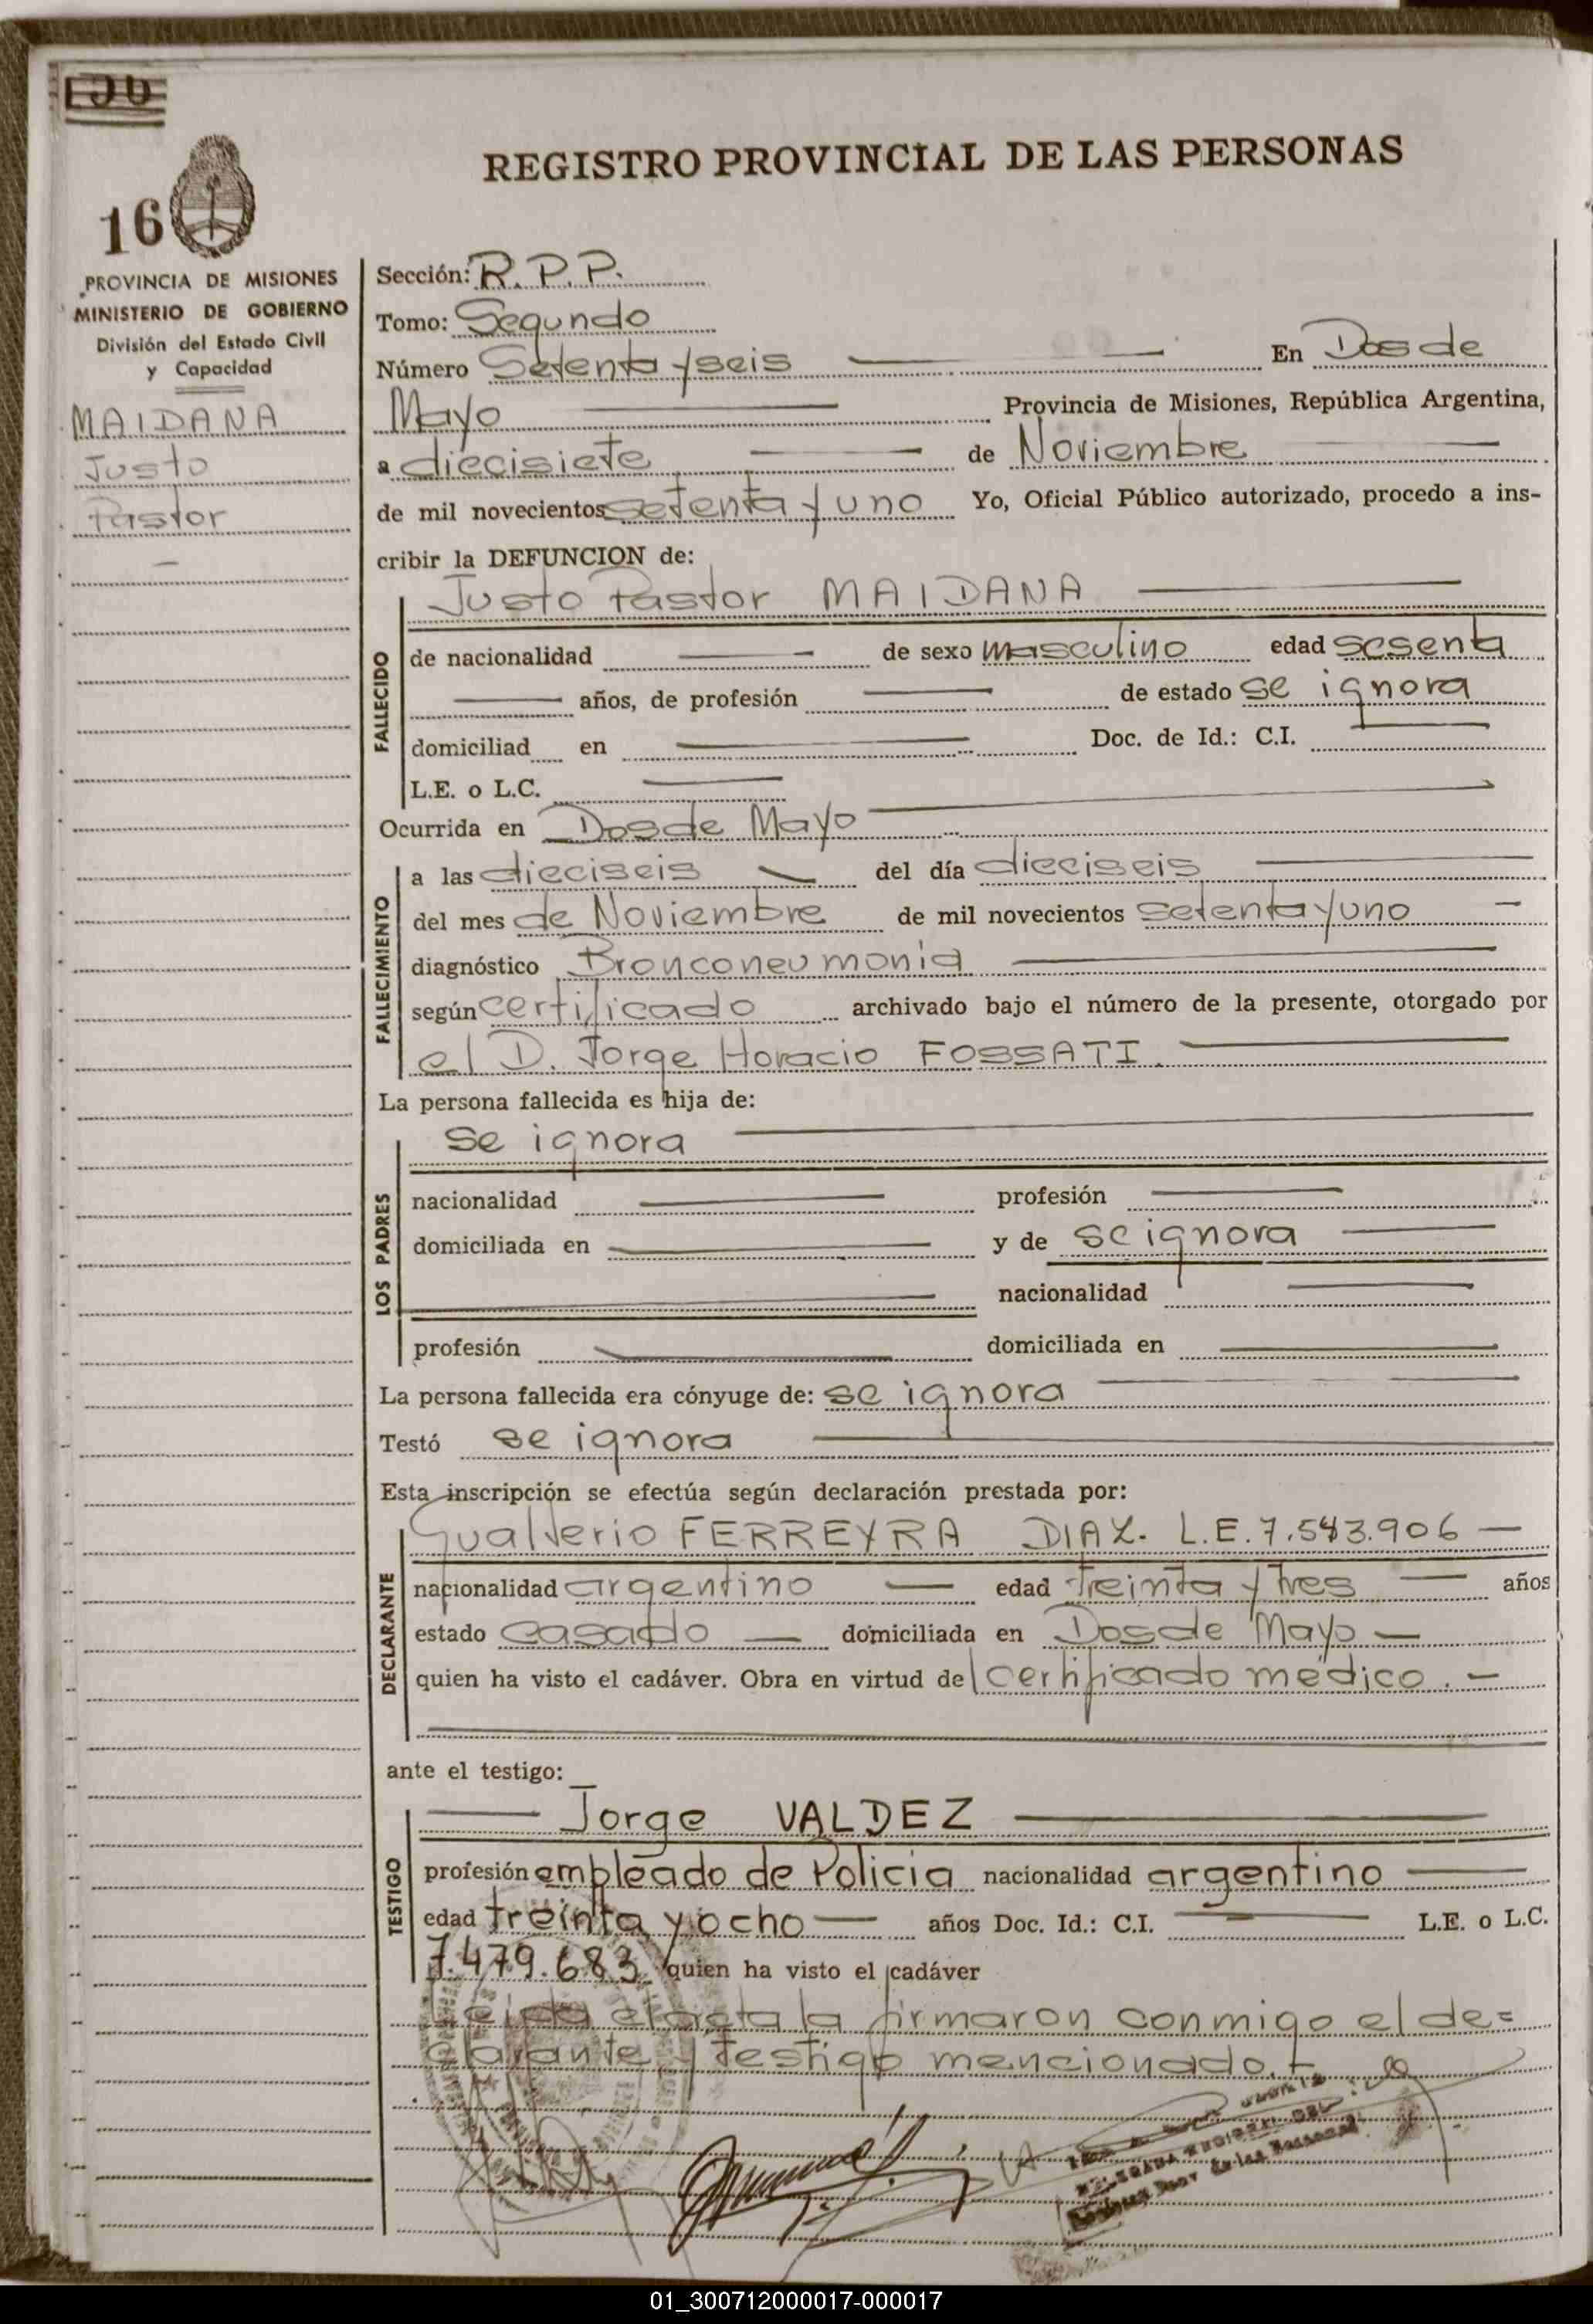 REGISTRO PROVINCIAL DE LAS PERSONAS
16
PROVINCIA DE MISIONES
MINISTERIO DE GOBIERNO
División del Estado Civil
y Capacidad
MAIDANA
Justo
Pastor
Sección: R.P.P.
Tomo: Segundo
Número Setenta y seis En Dos de
Mayo Provincia de Misiones, República Argentina,
a diecisiete de Noviembre
de mil novecientos setenta y uno Yo, Oficial Público autorizado, procedo a ins-
cribir la DEFUNCION de:
Justo Pastor MAIDANA
FALLECIDO
de nacionalidad de sexo masculino edad sesenta
años, de profesión de estado se ignora
domiciliad en Doc. de Id.: C.I.
L.E. o L.C.
Ocurrida en Dos de Mayo
FALLECIMIENTO
a las dieciseis del día dieciseis
del mes de Noviembre de mil novecientos setenta y uno
diagnóstico Bronconeumonia
según certificado archivado bajo el número de la presente, otorgado por
el D. Jorge Horacio FOSSATI.
La persona fallecida es hija de:
se ignora
LOS PADRES
nacionalidad profesión
domiciliada en y de se ignora
nacionalidad
profesión domiciliada en
La persona fallecida era cónyuge de: se ignora
Testó se ignora
Esta inscripción se efectúa según declaración prestada por:
Gualterio FERREYRA DIAZ. L.E. 7.543.906
DECLARANTE
nacionalidad argentino edad treinta y tres años
estado casado domiciliada en Dos de Mayo
quien ha visto el cadáver. Obra en virtud de certificado medico.
ante el testigo:
Jorge VALDEZ
TESTIGO
profesión empleado de Policia nacionalidad argentino
edad treinta y ocho años Doc. Id.: C.I. L.E. o L.C.
7.479.683 quien ha visto el cadáver
Leida el acta la firmaron conmigo el de=
clarante y testigo mencionado.
01_300712000017-000017